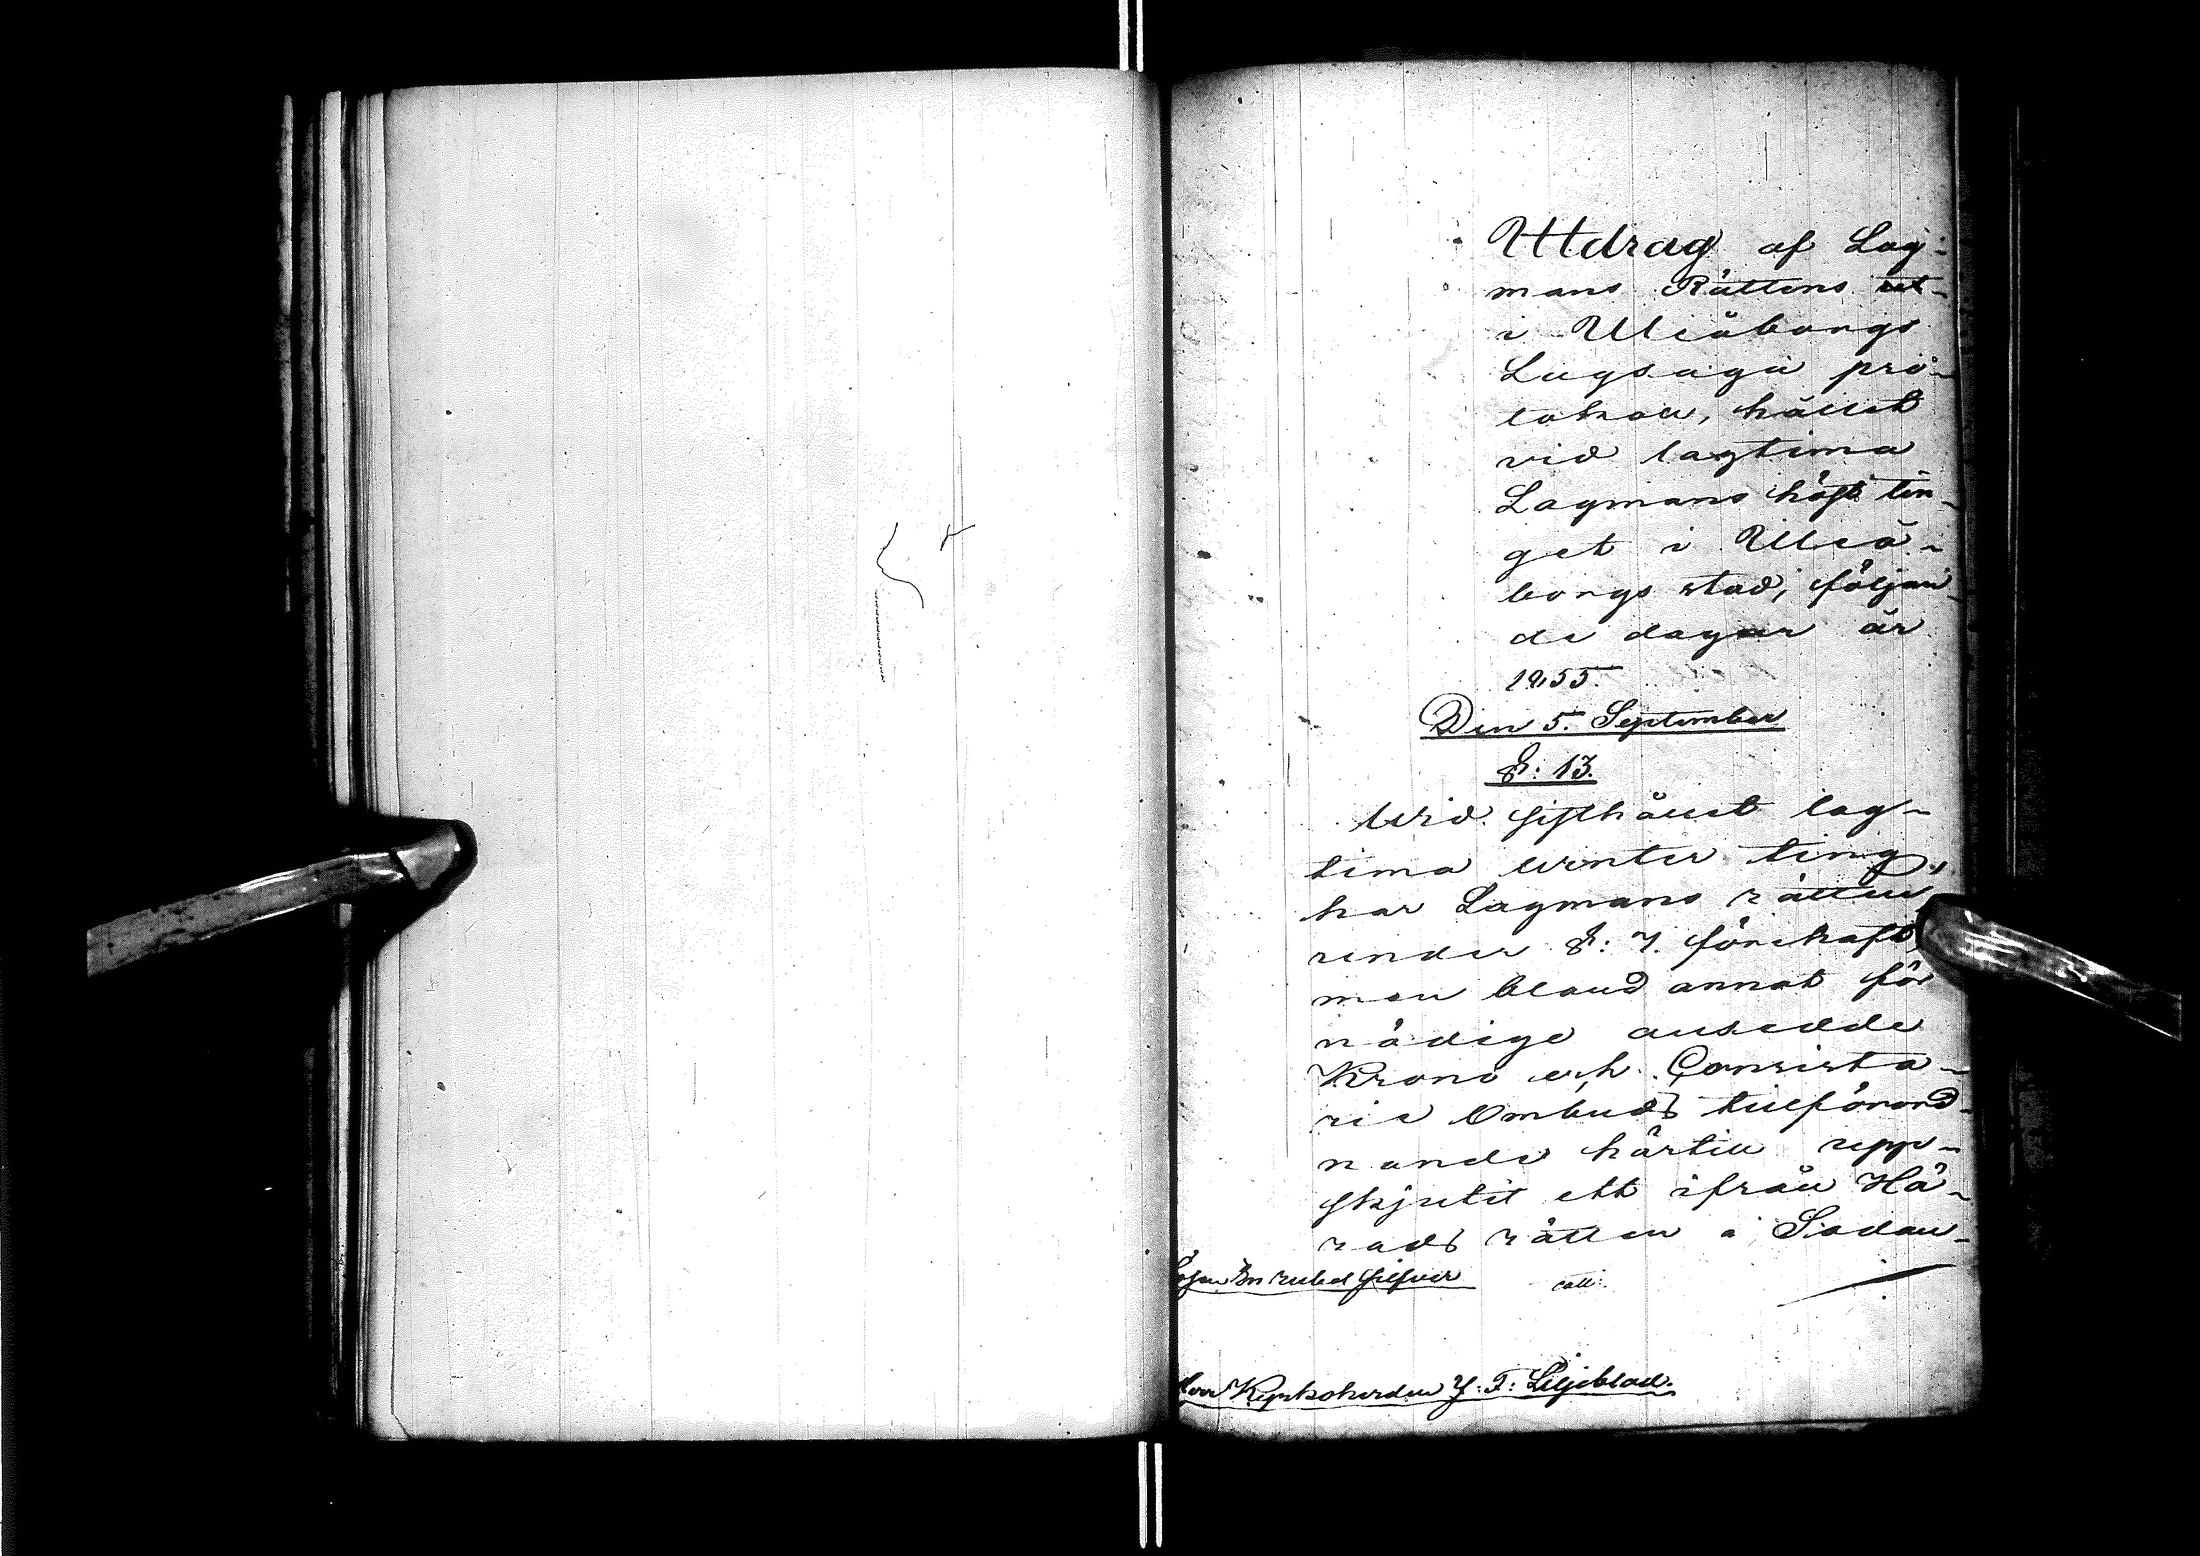 Utdrag af Lag-
mans Rättens
i Uleåborgs
Lagsaga pro-
tokoll, hållet
vid lagtima
Lagmans höst tin-
get i Uleå-
borgs stad, följan-
de dagar år
1855.
Den 5. September
§: 13.
Wid sisthållit lag-
tima winter ting,
har Lagmans rätten
under §: 7.
men bland annat för
nödige ansedde
Krono och Consisto-
rie Ombuds tillförord-
nande härtill upp-
skjutit ett ifrån Hä-
rads rätten i Sodan-
silfver
Kyrkoherden J: F: Liljeblad.